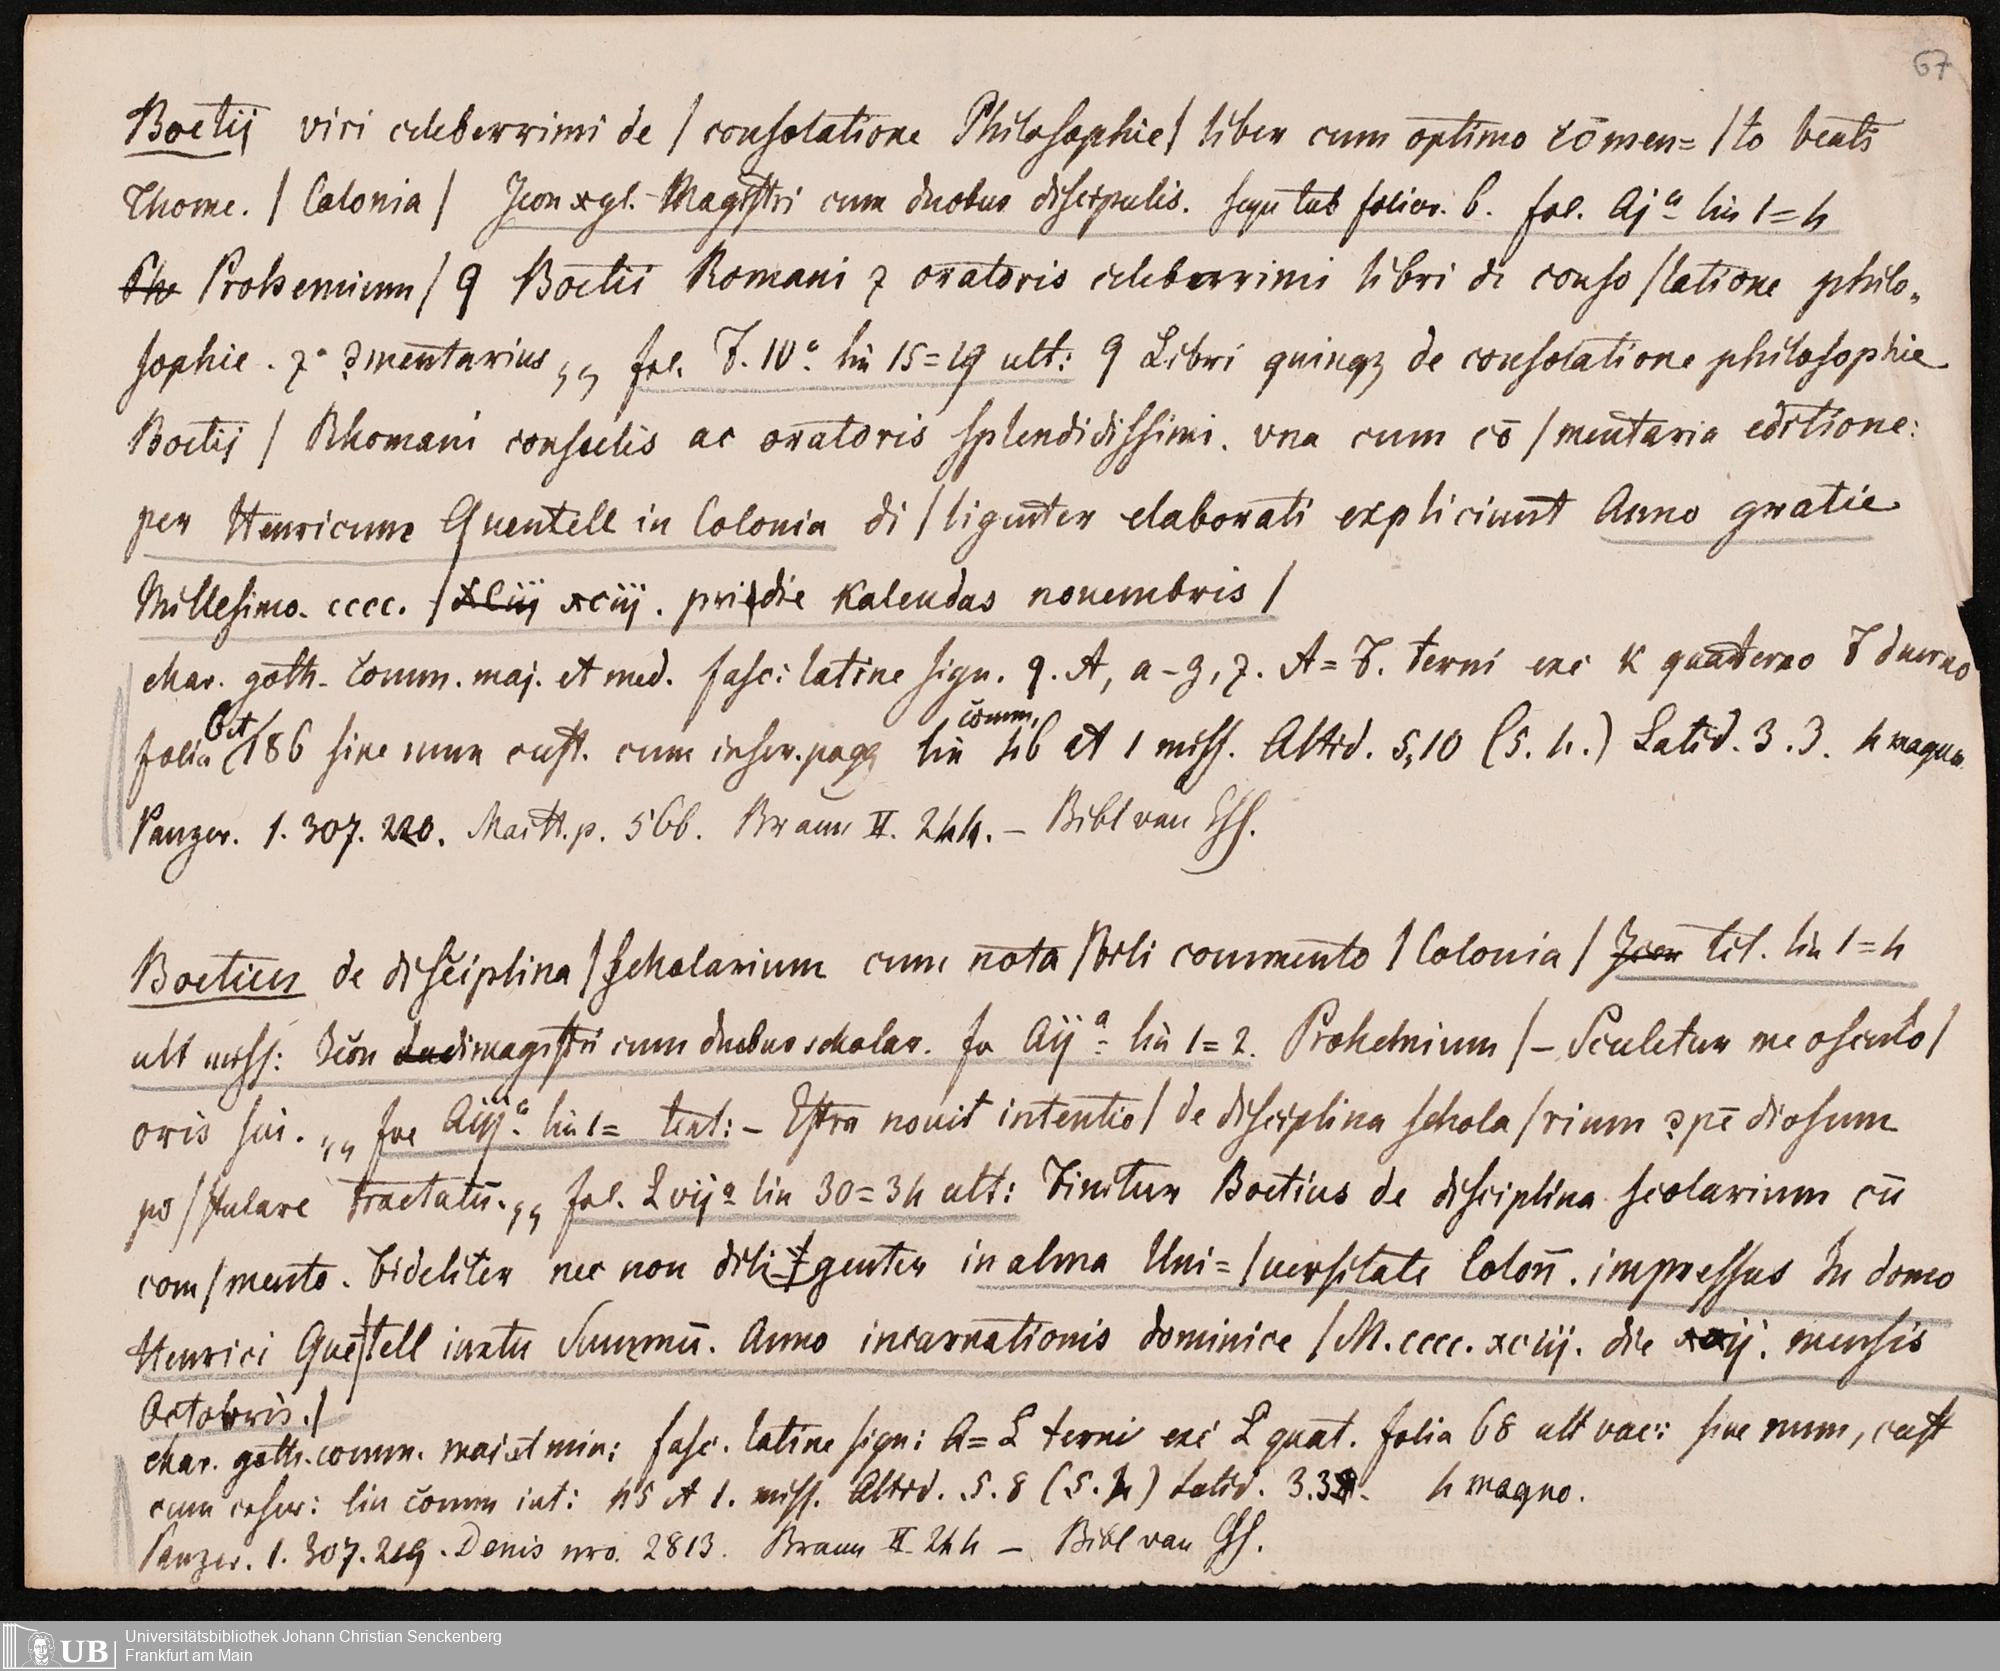 67
Boetij viri celeberrimi de / consolatione Philosophie / liber cum optimo cōmen= / to beati
Thome. / Colonia / Icon xyl. Magistri cum duobus discipulis. sequ tab folior. 6. fol. Aij a lin 1=4
Phe Prohemium / q Boetii Romani z oratoris celeberrimi libri de conso / latione philo„
sophie. z ꝯmentarius „ fol. T. 10a lin 15=19 ult: q Libri quinqz de consolatione philosophie
Boetij / Rhomani consulis ac oratoris splendidissimi. vna cum cō / mentaria editione:
per Henricum Quentell in Colonia di / ligenter elaborati expliciunt Anno gratie
Millesimo. cccc. / xciij xciij. pridie Kalendas nouembris /
char. goth. comm. maj. et med. fasc: latine sign. q. A, a-g, z. A=T. terni exc K quaterno T duerno
folia Cit 186 sine num cust. cum inscr. pagg lin comm. 46 et 1 miss. Altid. 5,10 (5. 4.) Latid. 3.3. 4 magna
Panzer. 1. 307. 220. Maitt. p. 566. Braun II. 244. – Bibl van Ess.
Boetius de disciplina / scholarium cum nota / bili commento / Colonia / Icon tit. lin 1=4
ult miss: Icon ludimagistri cum duobus scholar. fo Aij a lin 1=2. Prohemium / – Sculetur me osculo /
oris sui. „ fol Aiij a lin 1= text: – Estra nouit intentio / de disciplina schola / rium ꝯpē diosum
po / stulare tractatū. „ fol. L vij a lin 30=34 ult: Finitur Boetius de disciplina scolarium cū
com / mento. fideliter nec non dili / genter in alma Uni= / uersitate Colon̄. impressus In domo
Henrici Quē / tell iuxta Summū. Anno incarnationis dominice / M. cccc. xciij. die xxij. mensis
Octobris. /
char. goth. comm. mai et min: fasc. latine sign: A=L terni exc L quat. folia 68 ult vac: sine num, cust
cum inscr: lin comm int: 45 et 1. miss. Altid. 5.8 (5.4) Latid. 3.3 4 magno.
Panzer. 1. 307. 219. Denis nro. 2813. Braun II. 244 – Bibl van Ess.
UB Universitätsbibliothek Johann Christian Senckenberg
Frankfurt am Main